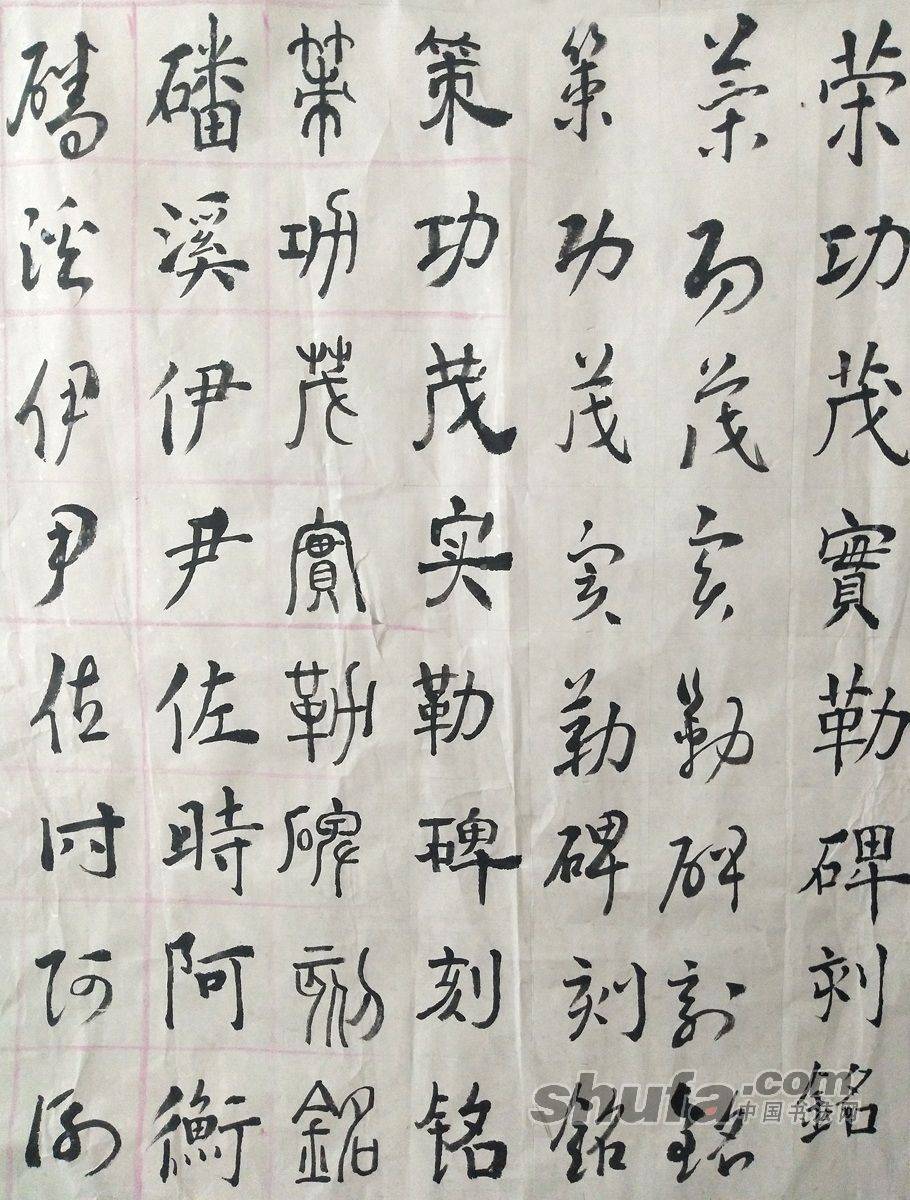 策功茂實勒碑刻銘
策功茂实勒碑刻銘
策功茂实勒碑刻銘
策功茂实勒碑刻铭
策功茂實勒碑刻銘
磻溪伊尹佐時阿衡
磻溪伊尹佐时阿衡
shufa.com
中国书法网